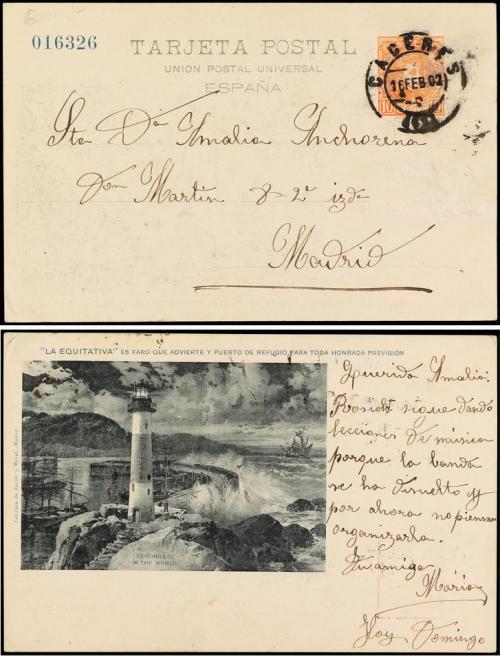 016326
TARJETA POSTAL
UNION POSTAL UNIVERSAL
ESPAÑA
CACERES
16 FEB 02
10
Sta Dª Amalia Anchorena
Don Martín 8-2º izda
Madrid
"LA EQUITATIVA" ES FARO QUE ADVIERTE Y PUERTO DE REFUGIO PARA TODA HONRADA PREVISIÓN
STRONGEST
IN THE WORLD
Querida Amalia:
sigue dando
lecciones de música
porque la banda
se ha disuelto y
por ahora no piensan
organizarla.
Tu amiga
María
Hoy Domingo